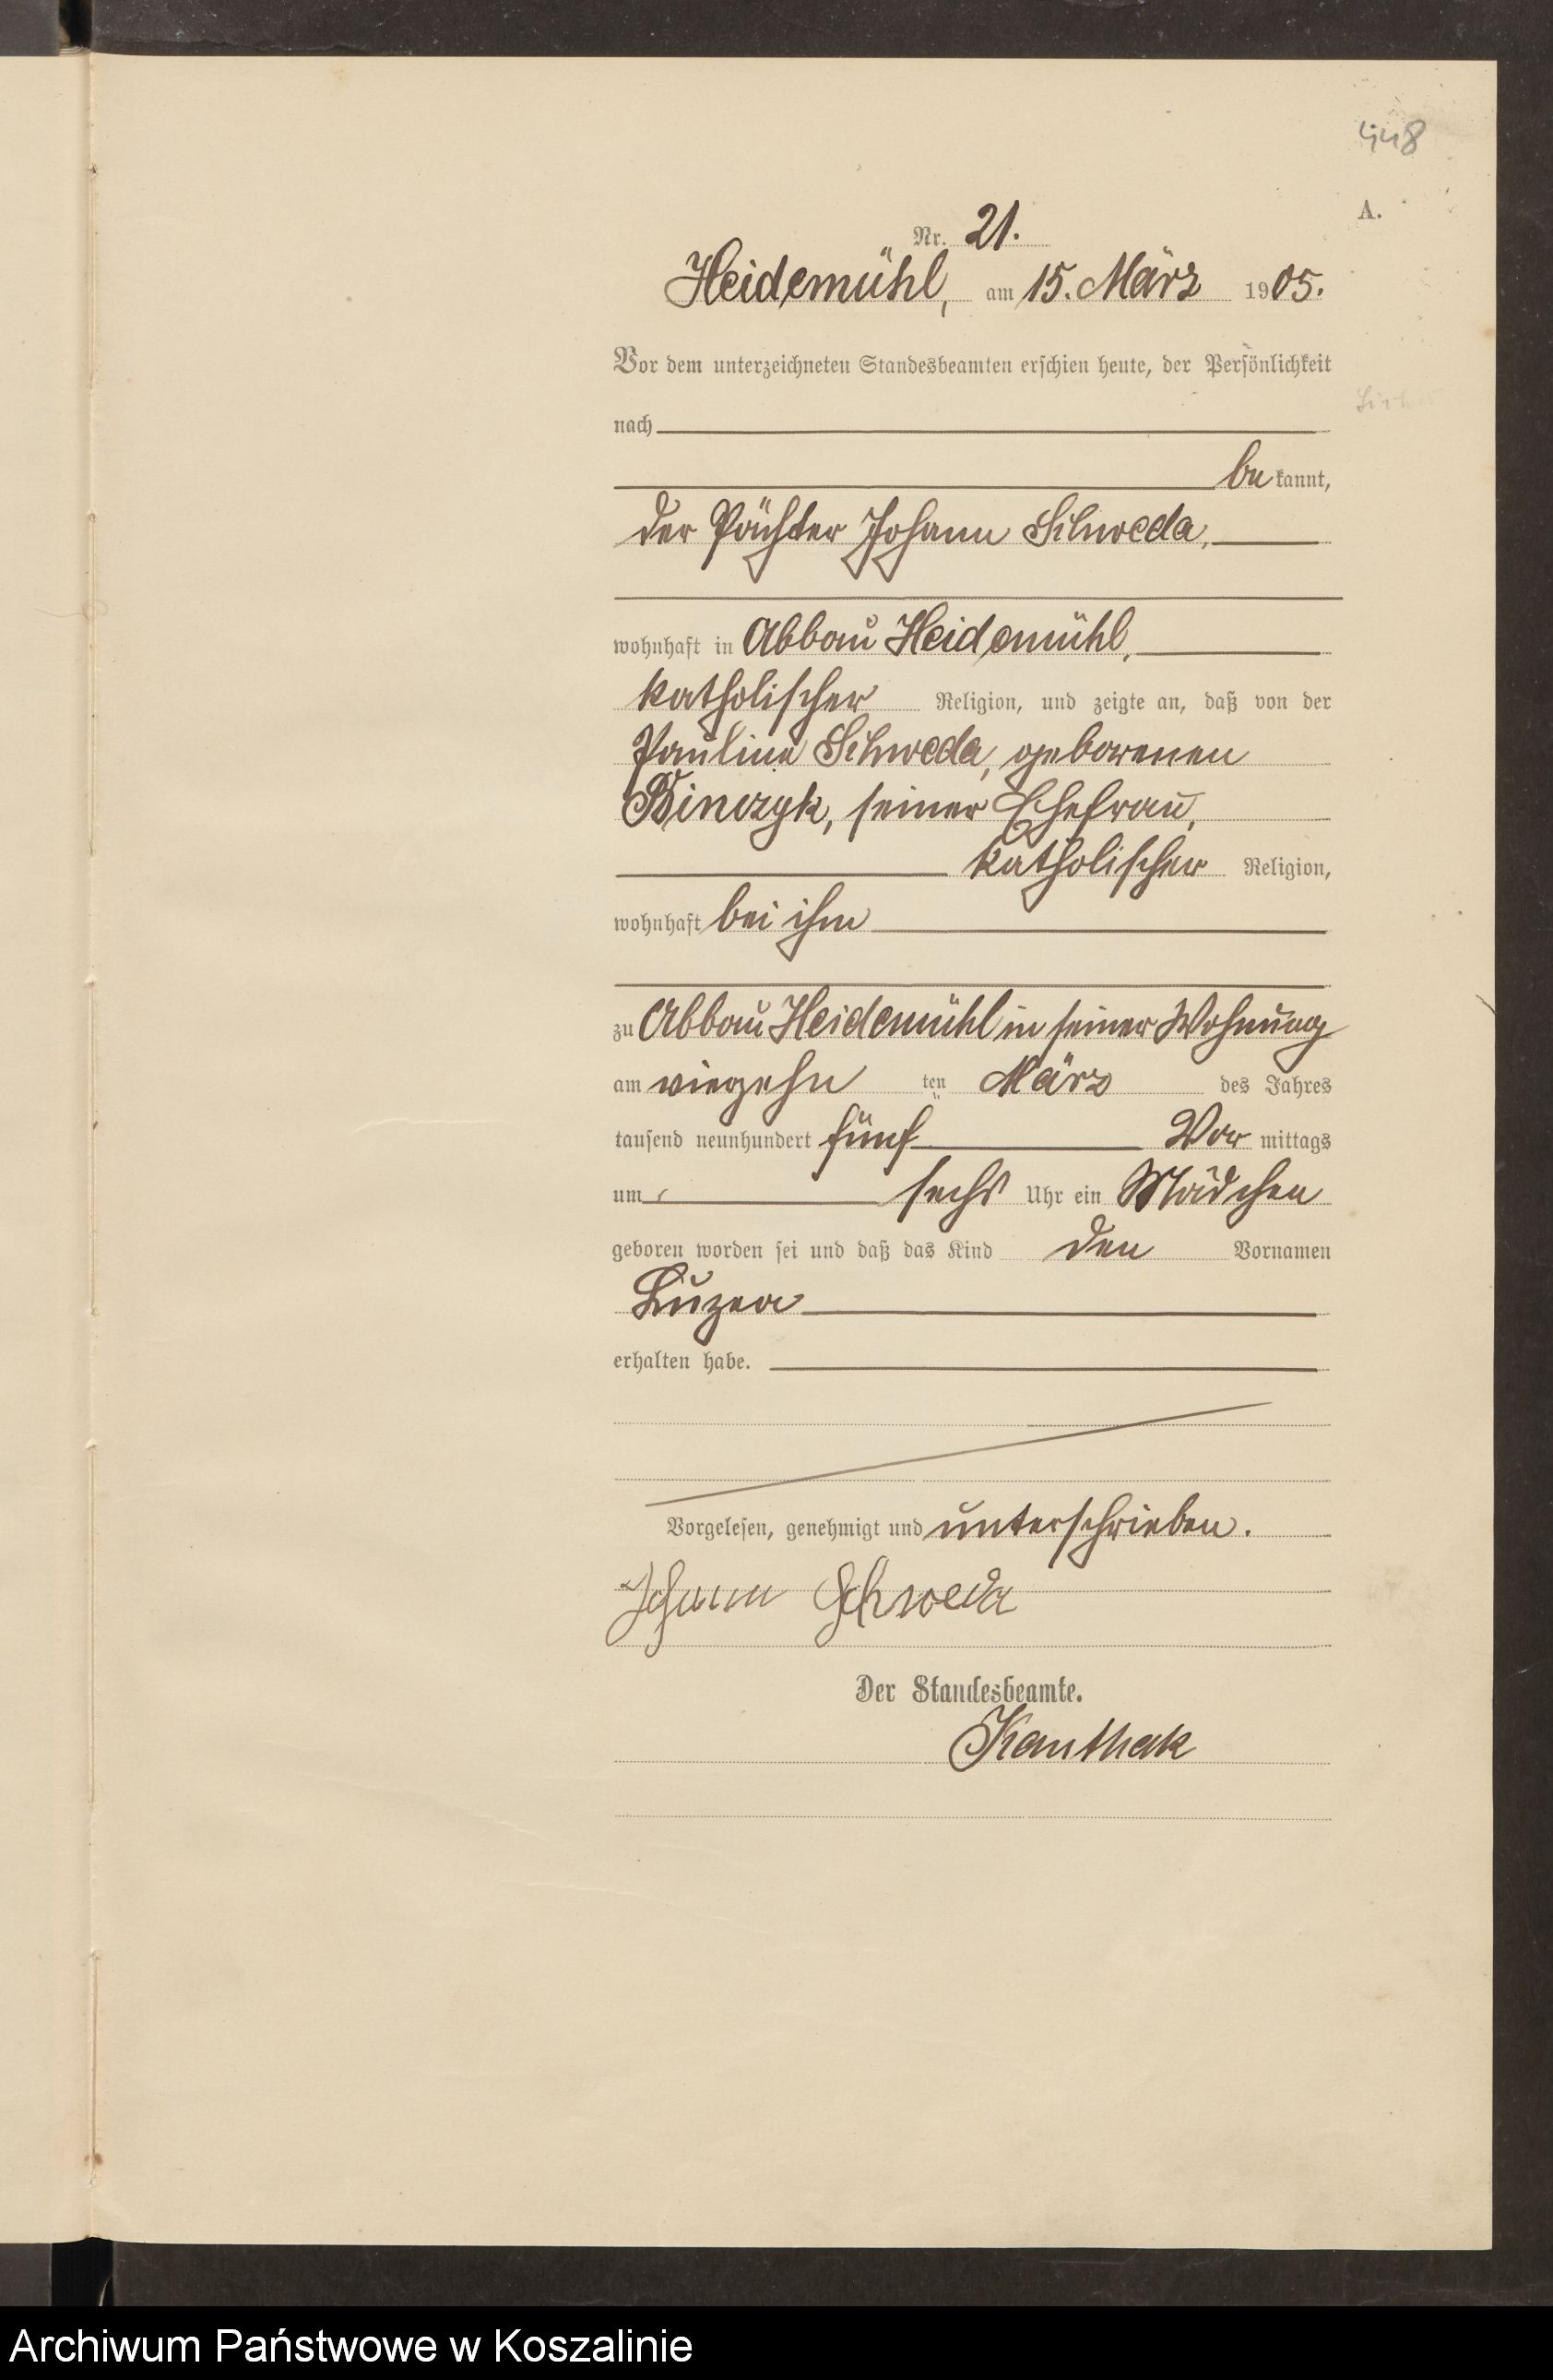 448
A.
Nr. 21.
Heidemühl, am 15. März 1905.
Vor dem unterzeichneten Standesbeamten erschien heute, der Persönlichkeit
nach
be kannt,
der Pächter Johann Schweda,
wohnhaft in Abbau Heidemühl,
katholischer Religion, und zeigte an, daß von der
Pauline Schweda, geborenen
Binczyk, seiner Ehefrau,
katholischer Religion,
wohnhaft bei ihm
zu Abbau Heidemühl in seiner Wohnung
am vierzehn ten März des Jahres
tausend neunhundert fünf Vor mittags
um sechs Uhr ein Mädchen
geboren worden sei und daß das Kind den Vornamen
erhalten habe.
Vorgelesen, genehmigt und unterschrieben.
Johann Schweda
Der Standesbeamte.
Kanthak
Archiwum Państwowe w Koszalinie